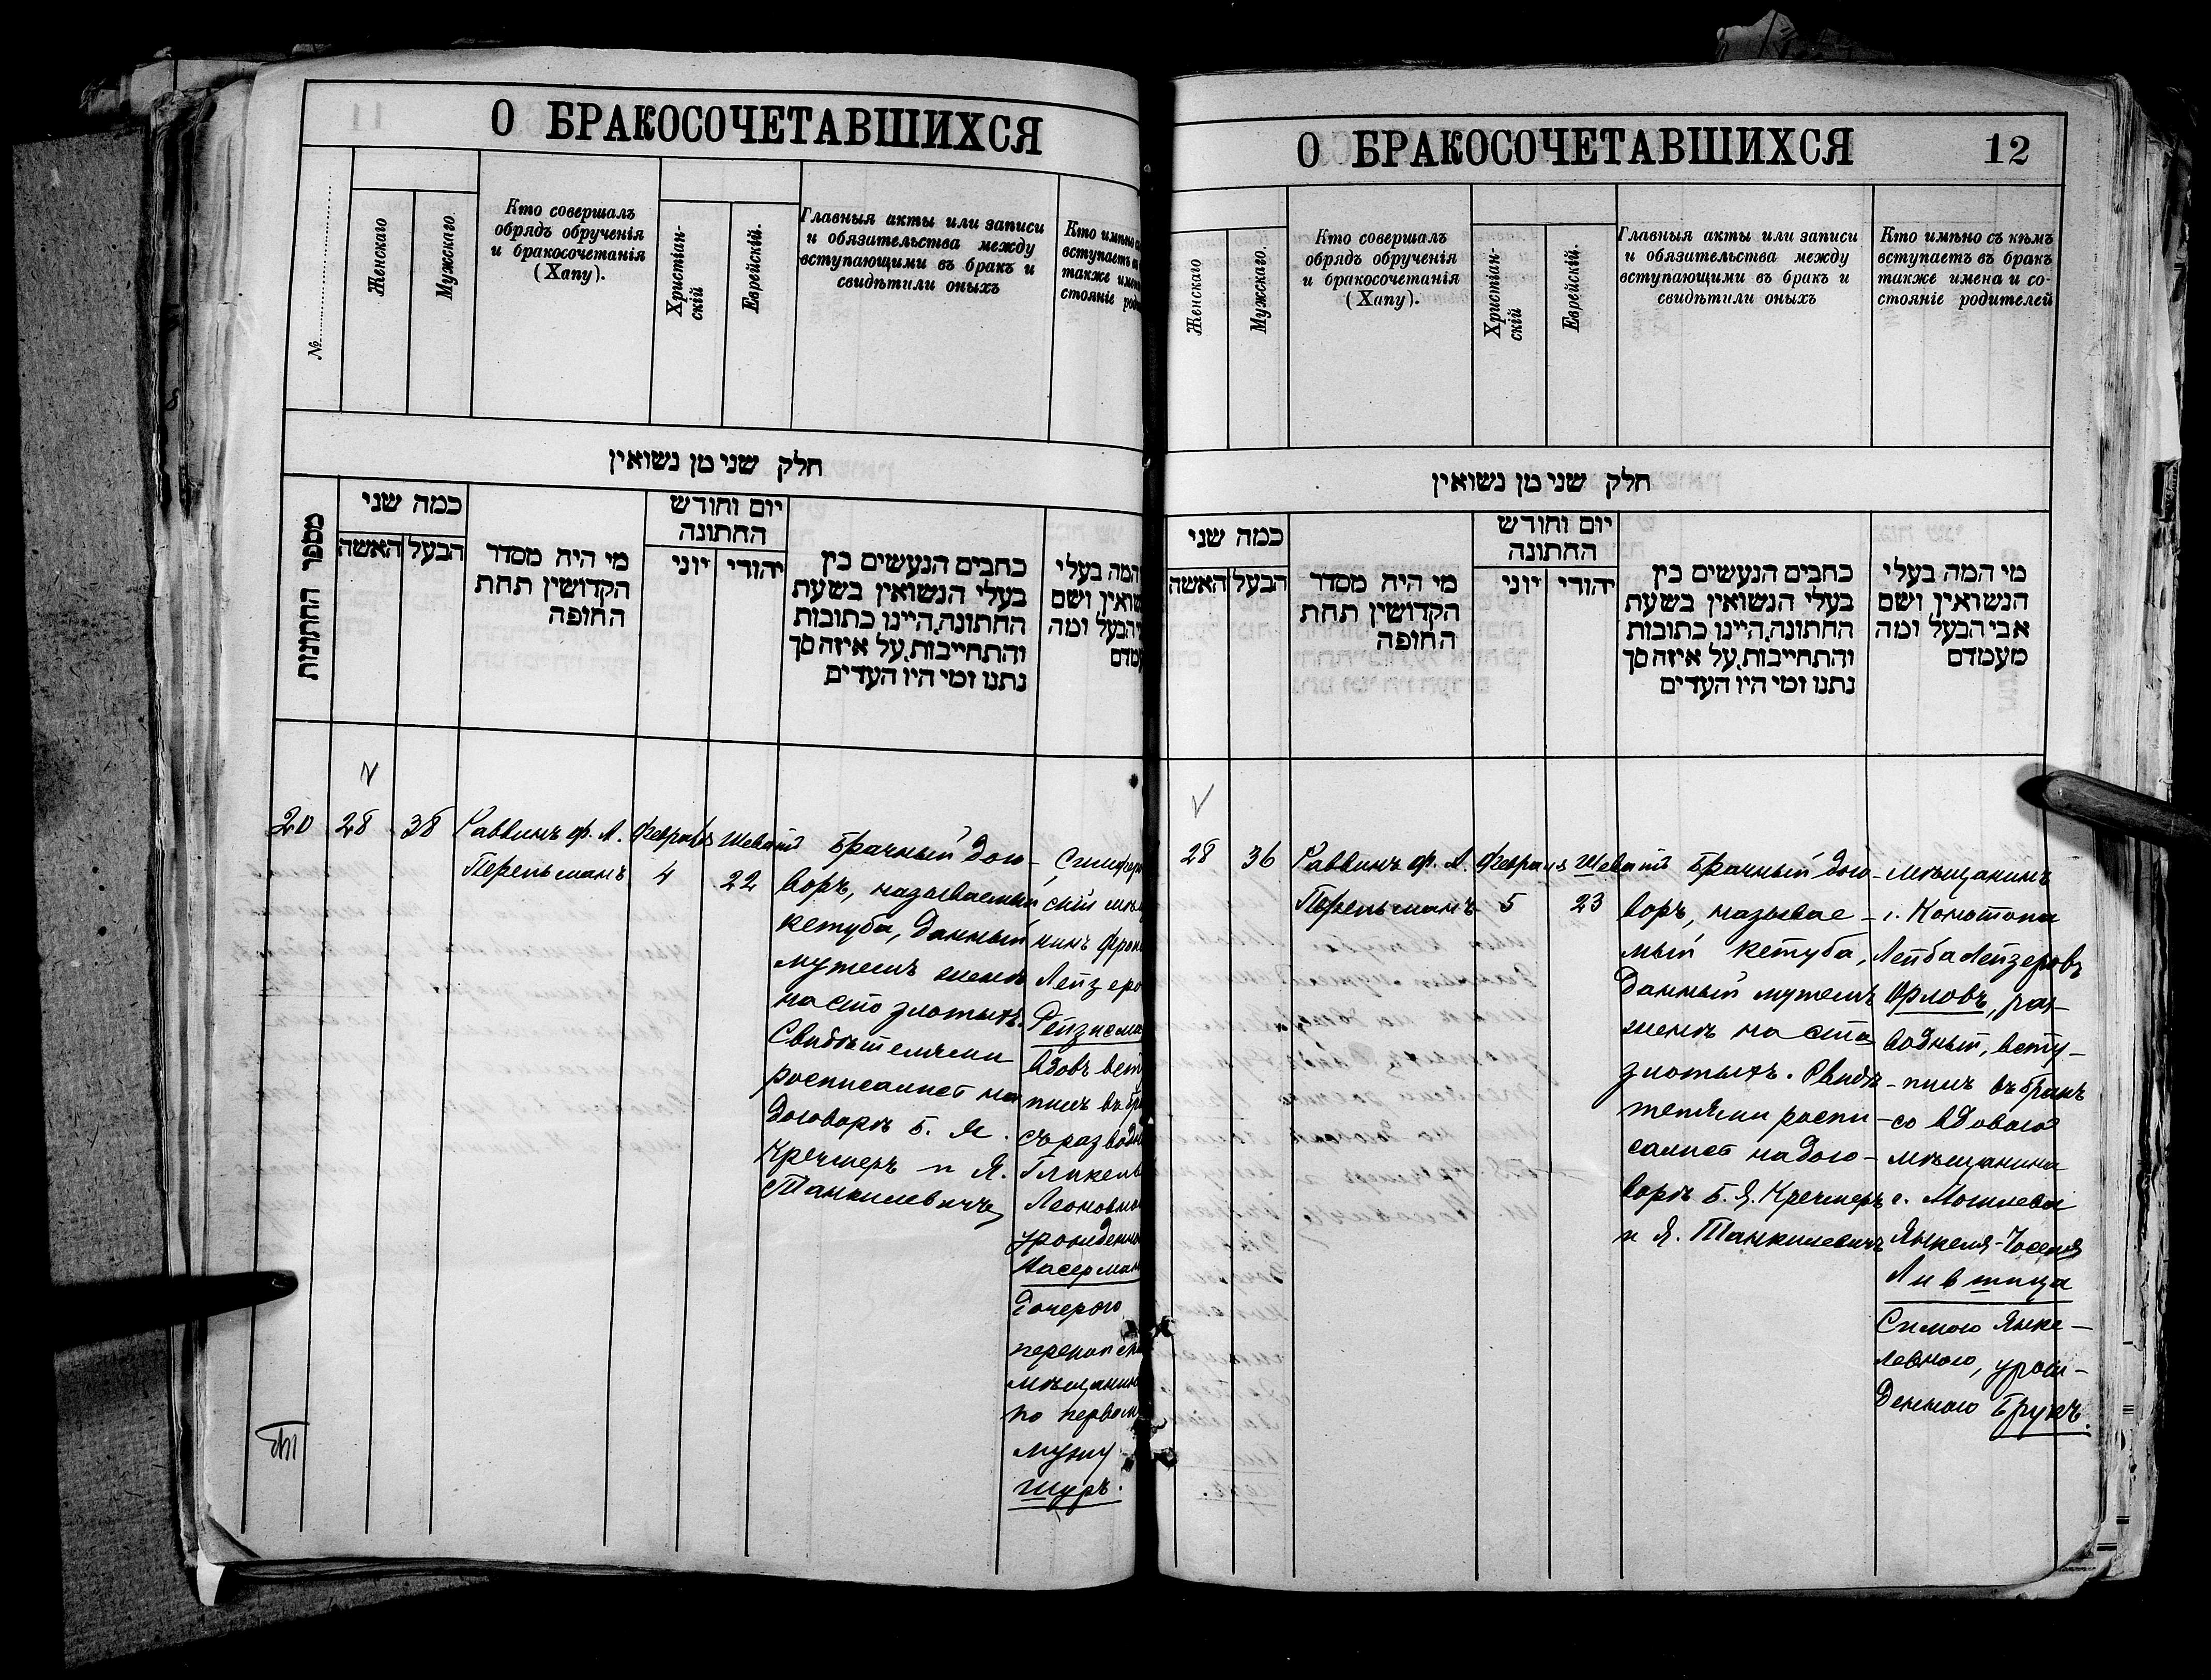 О БРАКОСОЧЕТАВШИХСЯ
№
Женскаго
Мужскаго
Кто совершалъ
обрядъ обрученія
и бракосочетанія
(Хапу).
Христіан-
скій
Еврейскій.
Главныя акты или записи
и обязательства между
вступающими въ бракъ и
свидѣтили оныхъ
Кто имѣно
вступаетъ
также
стояніе
חלק שני מן נשואין
מספר החתונות
כמה שני
האשה
הבעל
מי היה מסדר
הקדושין תחת
החופה
יום וחודש
החתונה
יוני
יהודי
כתבים הנעשים בין
בעלי הנשואין בשעת
החתונה, היינו כתובות
והתחייבות, על איזה סך
נתנו ומי היו העדים
המה בעלי
ושם
הבעל ומה
20
28
38
Раввинъ Ф. Л.
Перельманъ
Февраль
4
Шеватъ
22
Брачный дого-
воръ, называемый
кетуба, данный
мужемъ женѣ
на сто злотыхъ.
Свидѣтелями
росписались на
договорѣ Б. Я.
Кречмеръ и Я.
Танкилевичъ
Лейзеро
вдовъ
Леоновно
дочерью
мѣщанин
по первом
мужу
Шуръ.
О БРАКОСОЧЕТАВШИХСЯ
12
Женскаго
Мужскаго.
Кто совершалъ
обрядъ обрученія
и бракосочетанія
(Хапу).
Христіан-
скій
Еврейскій.
Главныя акты или записи
и обязательства между
вступающими въ бракъ и
свидѣтили оныхъ
Кто имѣно съ кѣмъ
вступаетъ въ бракъ
также имена и со-
стояніе родителей
חלק שני מן נשואין
כמה שני
האשה
הבעל
מי היה מסדר
הקדושין תחת
החופה
יום וחודש
החתונה
יוני
יהודי
כתבים הנעשים בין
בעלי הנשואין בשעת
החתונה, היינו כתובות
והתחייבות, על איזה סך
נתנו ומי היו העדים
מי המה בעלי
הנשואין, ושם
אבי הבעל ומה
מעמדם
28
36
Раввинъ Ф. Л.
Перельманъ
Февраля
5
Шеватъ
23
Брачный дого-
воръ, называе-
мый кетуба,
данный мужемъ
женѣ на сто
злотыхъ. Свидѣ-
телями роспи-
сались на дого-
ворѣ Б. Я. Кречмеръ
и Я. Танкилевичъ
мѣщанинъ
г. Конотопа
Лейба Лейзеровъ
Орловъ, раз-
водный, всту-
пилъ въ бракъ
со вдовою
мѣщанина
г. Могилева
Янкеля-Іоселя
Лившица
Симою Янке-
левною, урож-
денною Брукъ.